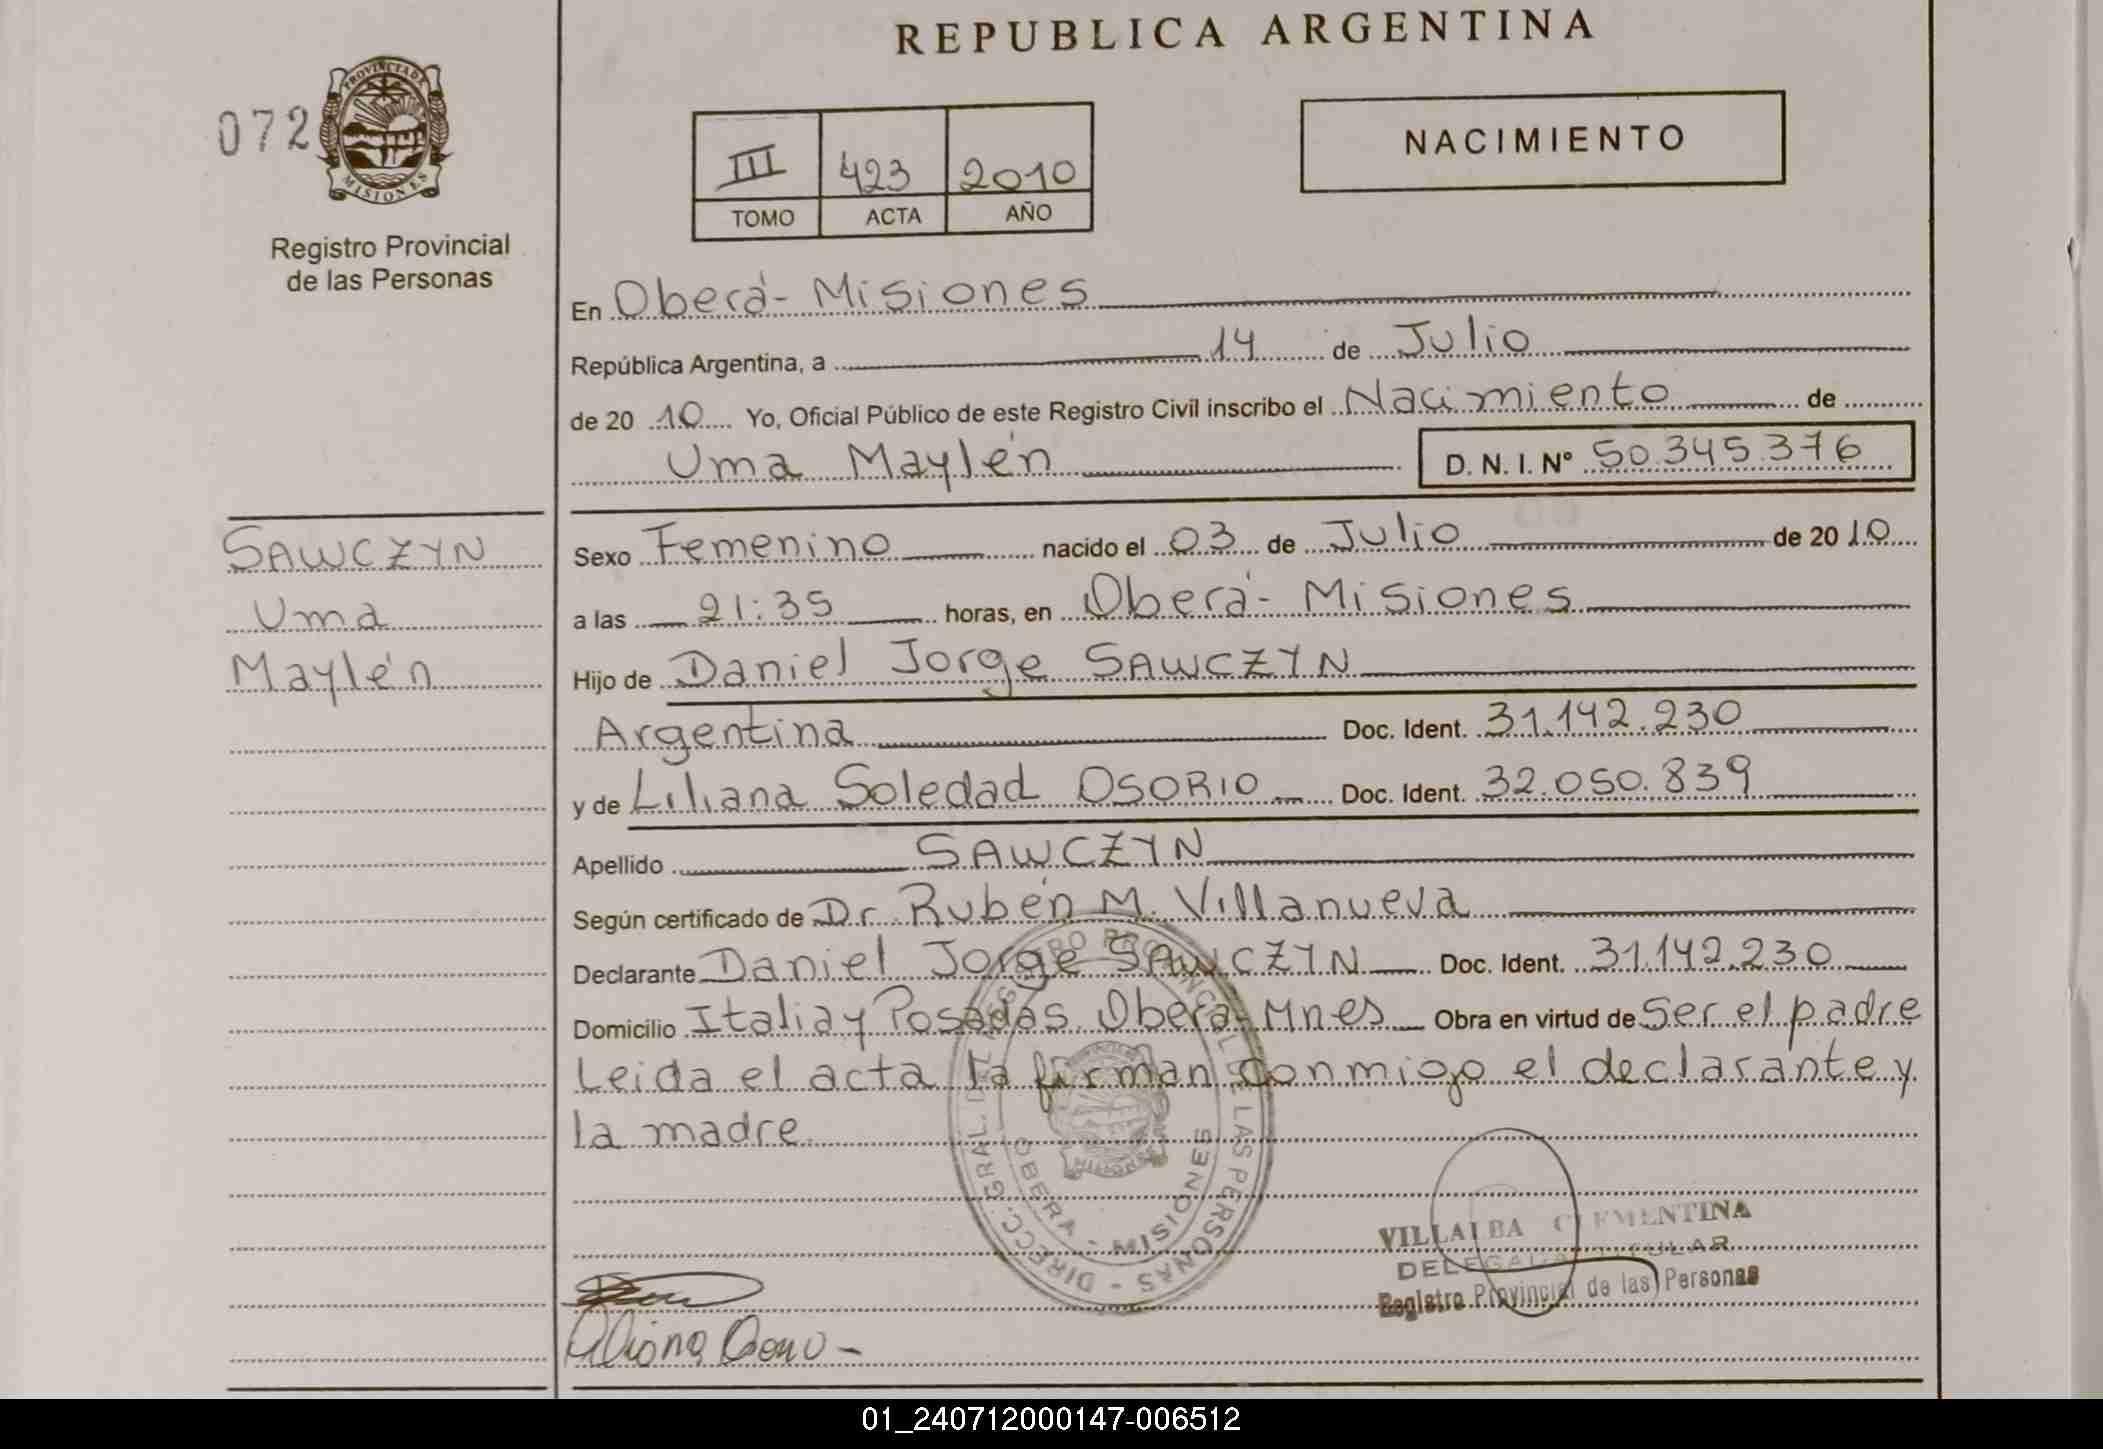 REPUBLICA ARGENTINA
072
PROVINCIA DE
MISIONES
Registro Provincial
de las Personas
III 423 2010
TOMO ACTA AÑO
NACIMIENTO
En Oberá - Misiones
República Argentina, a 14 de Julio
de 20 10 Yo, Oficial Público de este Registro Civil inscribo el Nacimiento de
Uma Maylén D. N. I. Nº 50.345.376
SAWCZYN
Uma
Maylén
Sexo Femenino nacido el 03 de Julio de 20 10
a las 21:35 horas, en Oberá - Misiones
Hijo de Daniel Jorge SAWCZYN
Argentina Doc. Ident. 31.142.230
y de Liliana Soledad OSORIO Doc. Ident. 32.050.839
Apellido SAWCZYN
Según certificado de Dr. Rubén M. Villanueva
Declarante Daniel Jorge SAWCZYN Doc. Ident. 31.142.230
Domicilio Italia y Posadas Oberá Mnes Obra en virtud de Ser el padre
Leida el acta la firman conmigo el declarante y
la madre
DIRECC. GRAL. DEL REGISTRO PROVINCIAL DE LAS PERSONAS -
OBERA - MISIONES
VILLALBA CLEMENTINA
DELEGADA TITULAR
Registro Provincial de las Personas
01_240712000147-006512